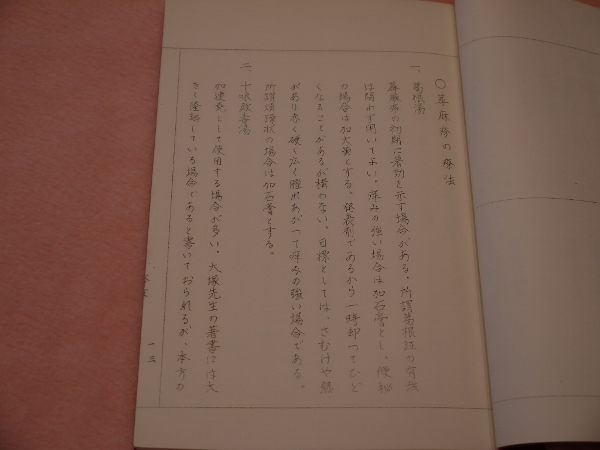 ○蕁麻疹の療法
一、葛根湯
蕁麻疹の初期に著効を示す場合がある。所謂葛根証の有無
は問わず用いてよい。痒みの強い場合は加石膏とし、便秘
の場合は加大黄とする。発表剤であるから一時却ってひど
くなることがあるが構わない。目標としては、さむけや熱
があり赤く硬く広く腫れあがって痒みの強い場合である。
所謂 の場合は加石膏とする。
二、十味敗毒湯
加連翹として使用する場合が多い。大塚先生の著書には大
きく隆起している場合であると書いておられるが、本方の
一三